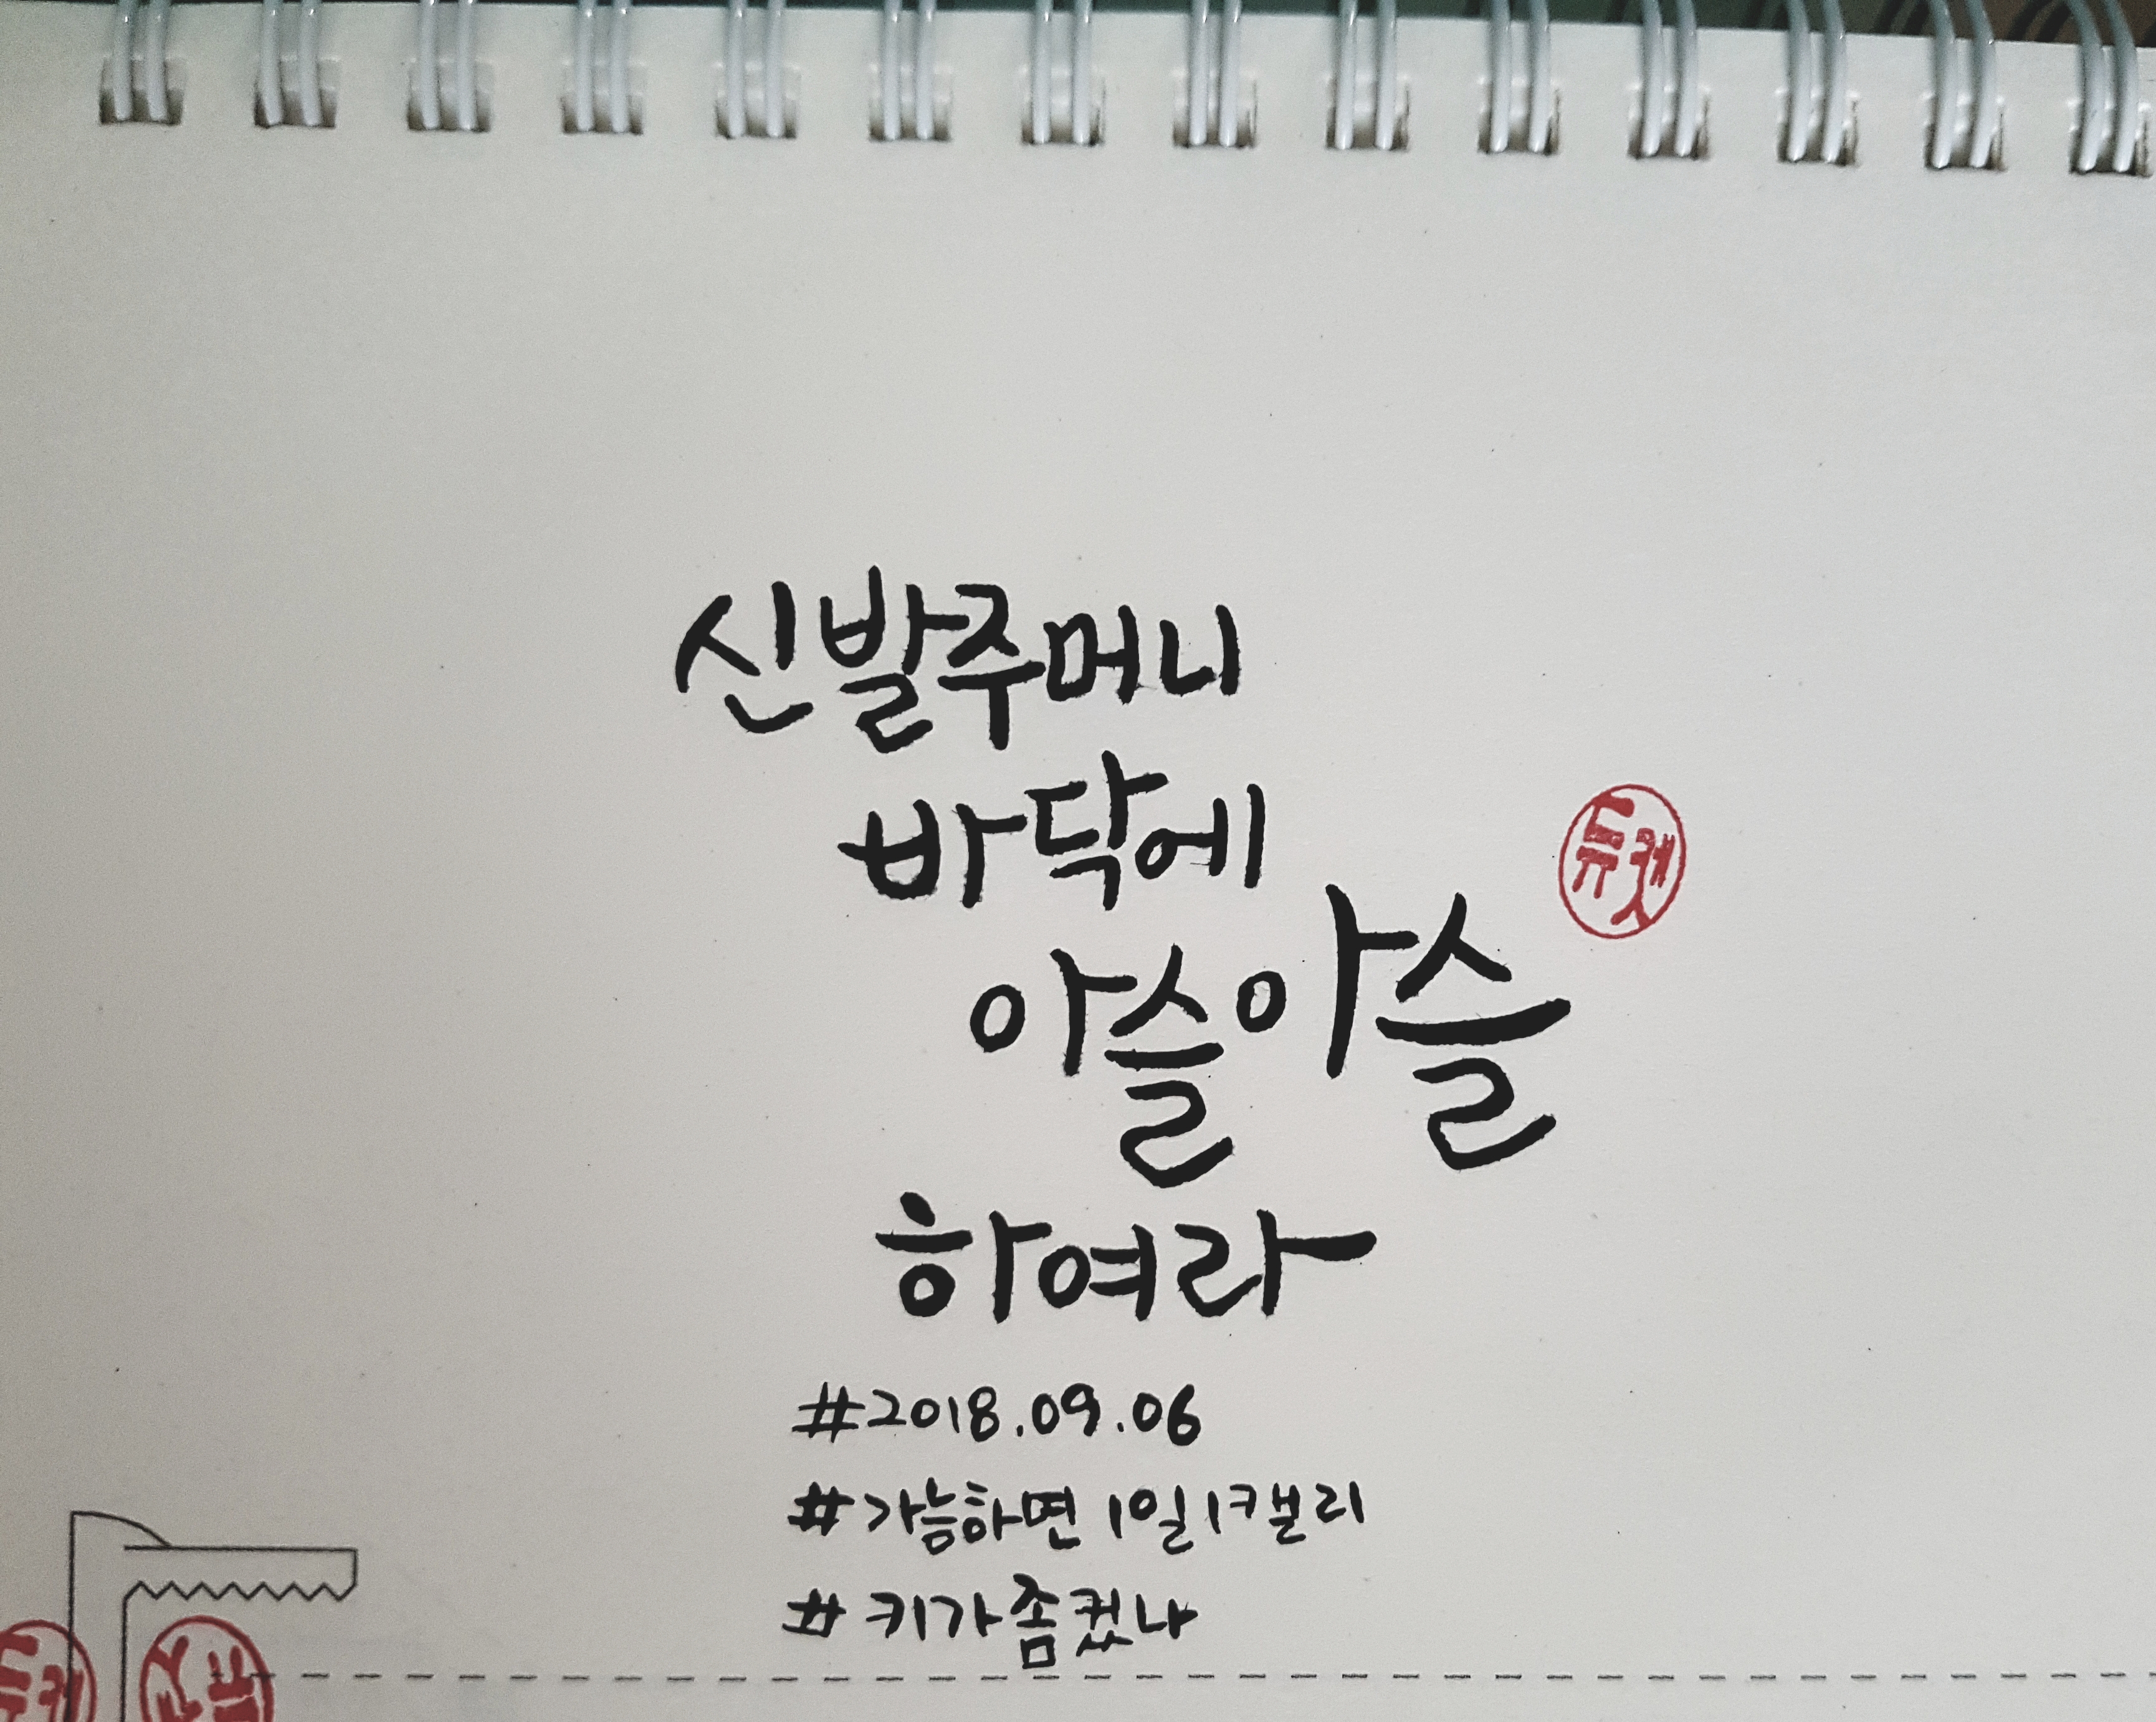 신발주머니
바닥에
아슬아슬
듀캣
하여라
#2018.09.06
#가능하면 1일1캘리
#키가좀컸나